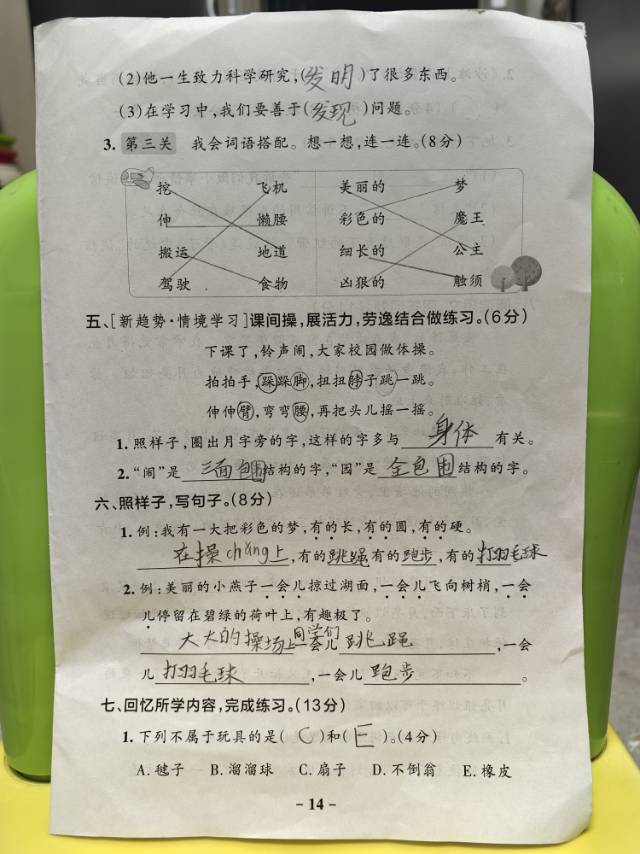 (2)他一生致力科学研究,(发明)了很多东西。
(3)在学习中,我们要善于(发现)问题。
3. 第三关 我会词语搭配。想一想,连一连。(8分)
挖 飞机 美丽的 梦
伸 懒腰 彩色的 魔王
搬运 地道 细长的 公主
驾驶 食物 凶狠的 触须
五、[新趋势·情境学习]课间操,展活力,劳逸结合做练习。(6分)
下课了,铃声闹,大家校园做体操。
拍拍手,跺跺脚,扭扭脖子跳一跳。
伸伸臂,弯弯腰,再把头儿摇一摇。
1. 照样子,圈出月字旁的字,这样的字多与 身体 有关。
2. “闹”是 三面包围结构的字,“园”是 全包围结构的字。
六、照样子,写句子。(8分)
1. 例:我有一大把彩色的梦,有的长,有的圆,有的硬。
在操chǎng上,有的跳绳有的跑步,有的打羽毛球
2. 例:美丽的小燕子一会儿掠过湖面,一会儿飞向树梢,一会
儿停留在碧绿的荷叶上,有趣极了。
大大的操场上同学们一会儿跳绳,一会
儿打羽毛球,一会儿跑步。
七、回忆所学内容,完成练习。(13分)
1. 下列不属于玩具的是(C)和(E)。(4分)
A. 毽子 B. 溜溜球 C. 扇子 D. 不倒翁 E. 橡皮
- 14 -